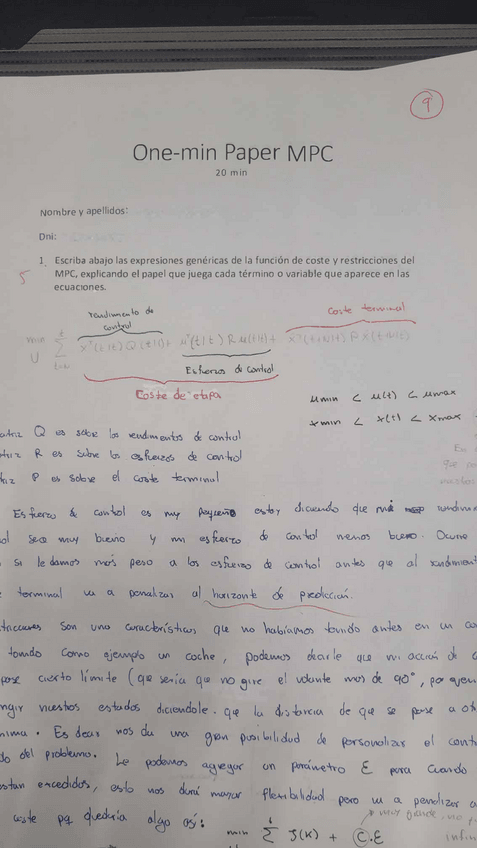 9
One-min Paper MPC
20 min
Nombre y apellidos:
Dni:
1. Escriba abajo las expresiones genéricas de la función de coste y restricciones del
MPC, explicando el papel que juega cada término o variable que aparece en las
ecuaciones.
5
rendimiento de
control
Coste terminal
min
U
Esfuerzos de control
Coste de etapa
umin < u(t) < umax
xmin < x(t) < xmax
atriz Q es sobre los rendimientos de control
triz R es sobre los esfuerzos de control
riz P es sobre el coste terminal
Esfuerzo de control es muy pequeño estoy diciendo que mi
ol sea muy bueno y mi esfuerzo de control menos bueno. Ocurre
si le damos más peso a los esfuerzo de control antes que al rendimient
terminal va a penalizar al horizonte de predicción.
tricciones son una característica que no habíamos tenido antes en un
tomando como ejemplo un coche, podemos decirle que mi acción de
pase cierto límite (que sería que no gire el volante más de 90°, por ejem
ngir nuestros estados diciendole que la distancia de que se pase a ot
nima. Es decir nos da una gran posibilidad de personalizar el cont
do del problema. Le podemos agregar un parámetro ε para cuando
estan excedidos, esto nos dará mayor flexibilidad pero va a penalizar
coste pq quedaría algo así:
min Σ J(K) + C.ε
muy grande,